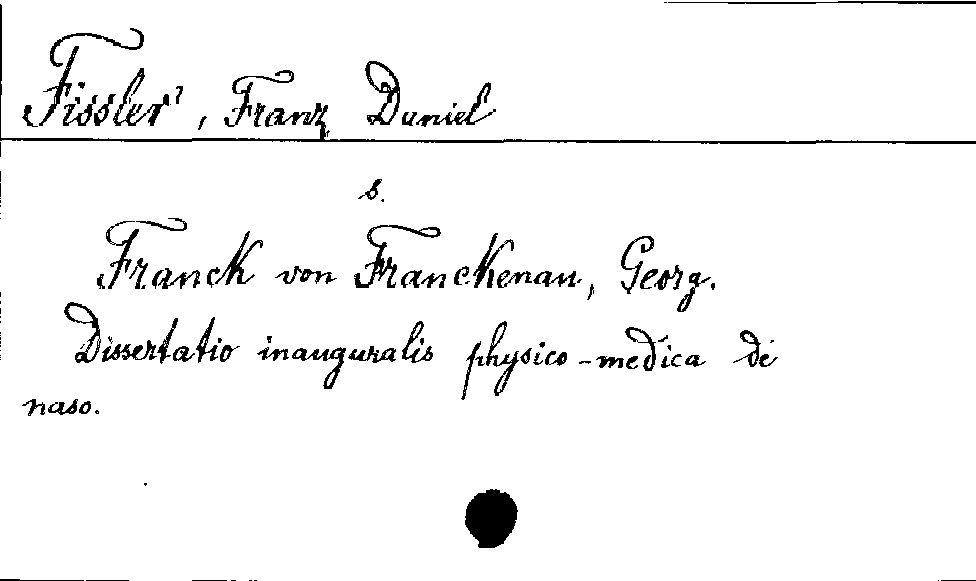 Fissler, Franz Daniel
s.
Franck von Franckenau, Georg.
Dissertatio inauguralis physico-medica de
naso.